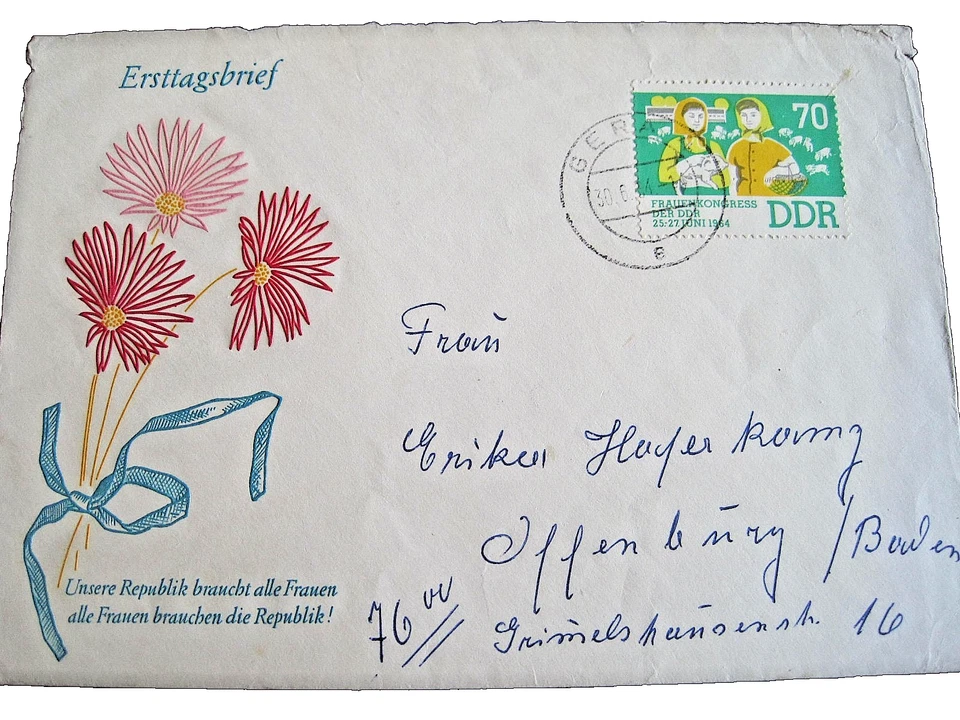 Ersttagsbrief
70
FRAUENKONGRESS
DER DDR
25.-27. JUNI 1964
DDR
GERA
30.6.
Frau
Erika Haferkamp
Offenburg / Baden
76 00
Grimmelshausenstr. 16
Unsere Republik braucht alle Frauen
alle Frauen brauchen die Republik!